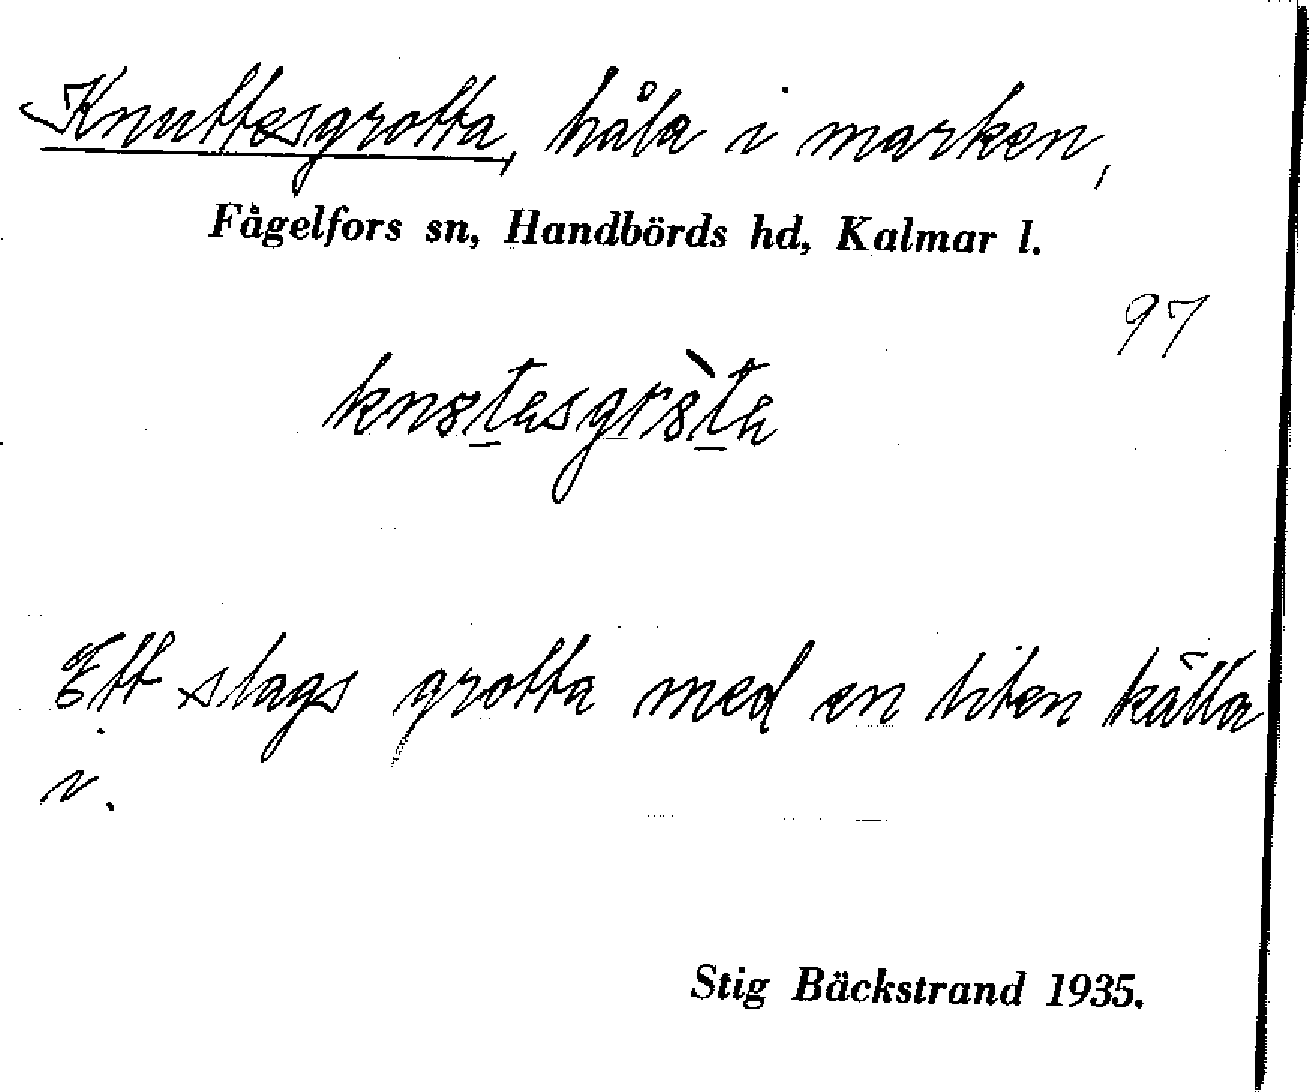 Knuttesgrotta, håla i marken,
Fågelfors sn, Handbörds hd, Kalmar l.
97
Ett slags grotta med en liten källa
i.
Stig Bäckstrand 1935.